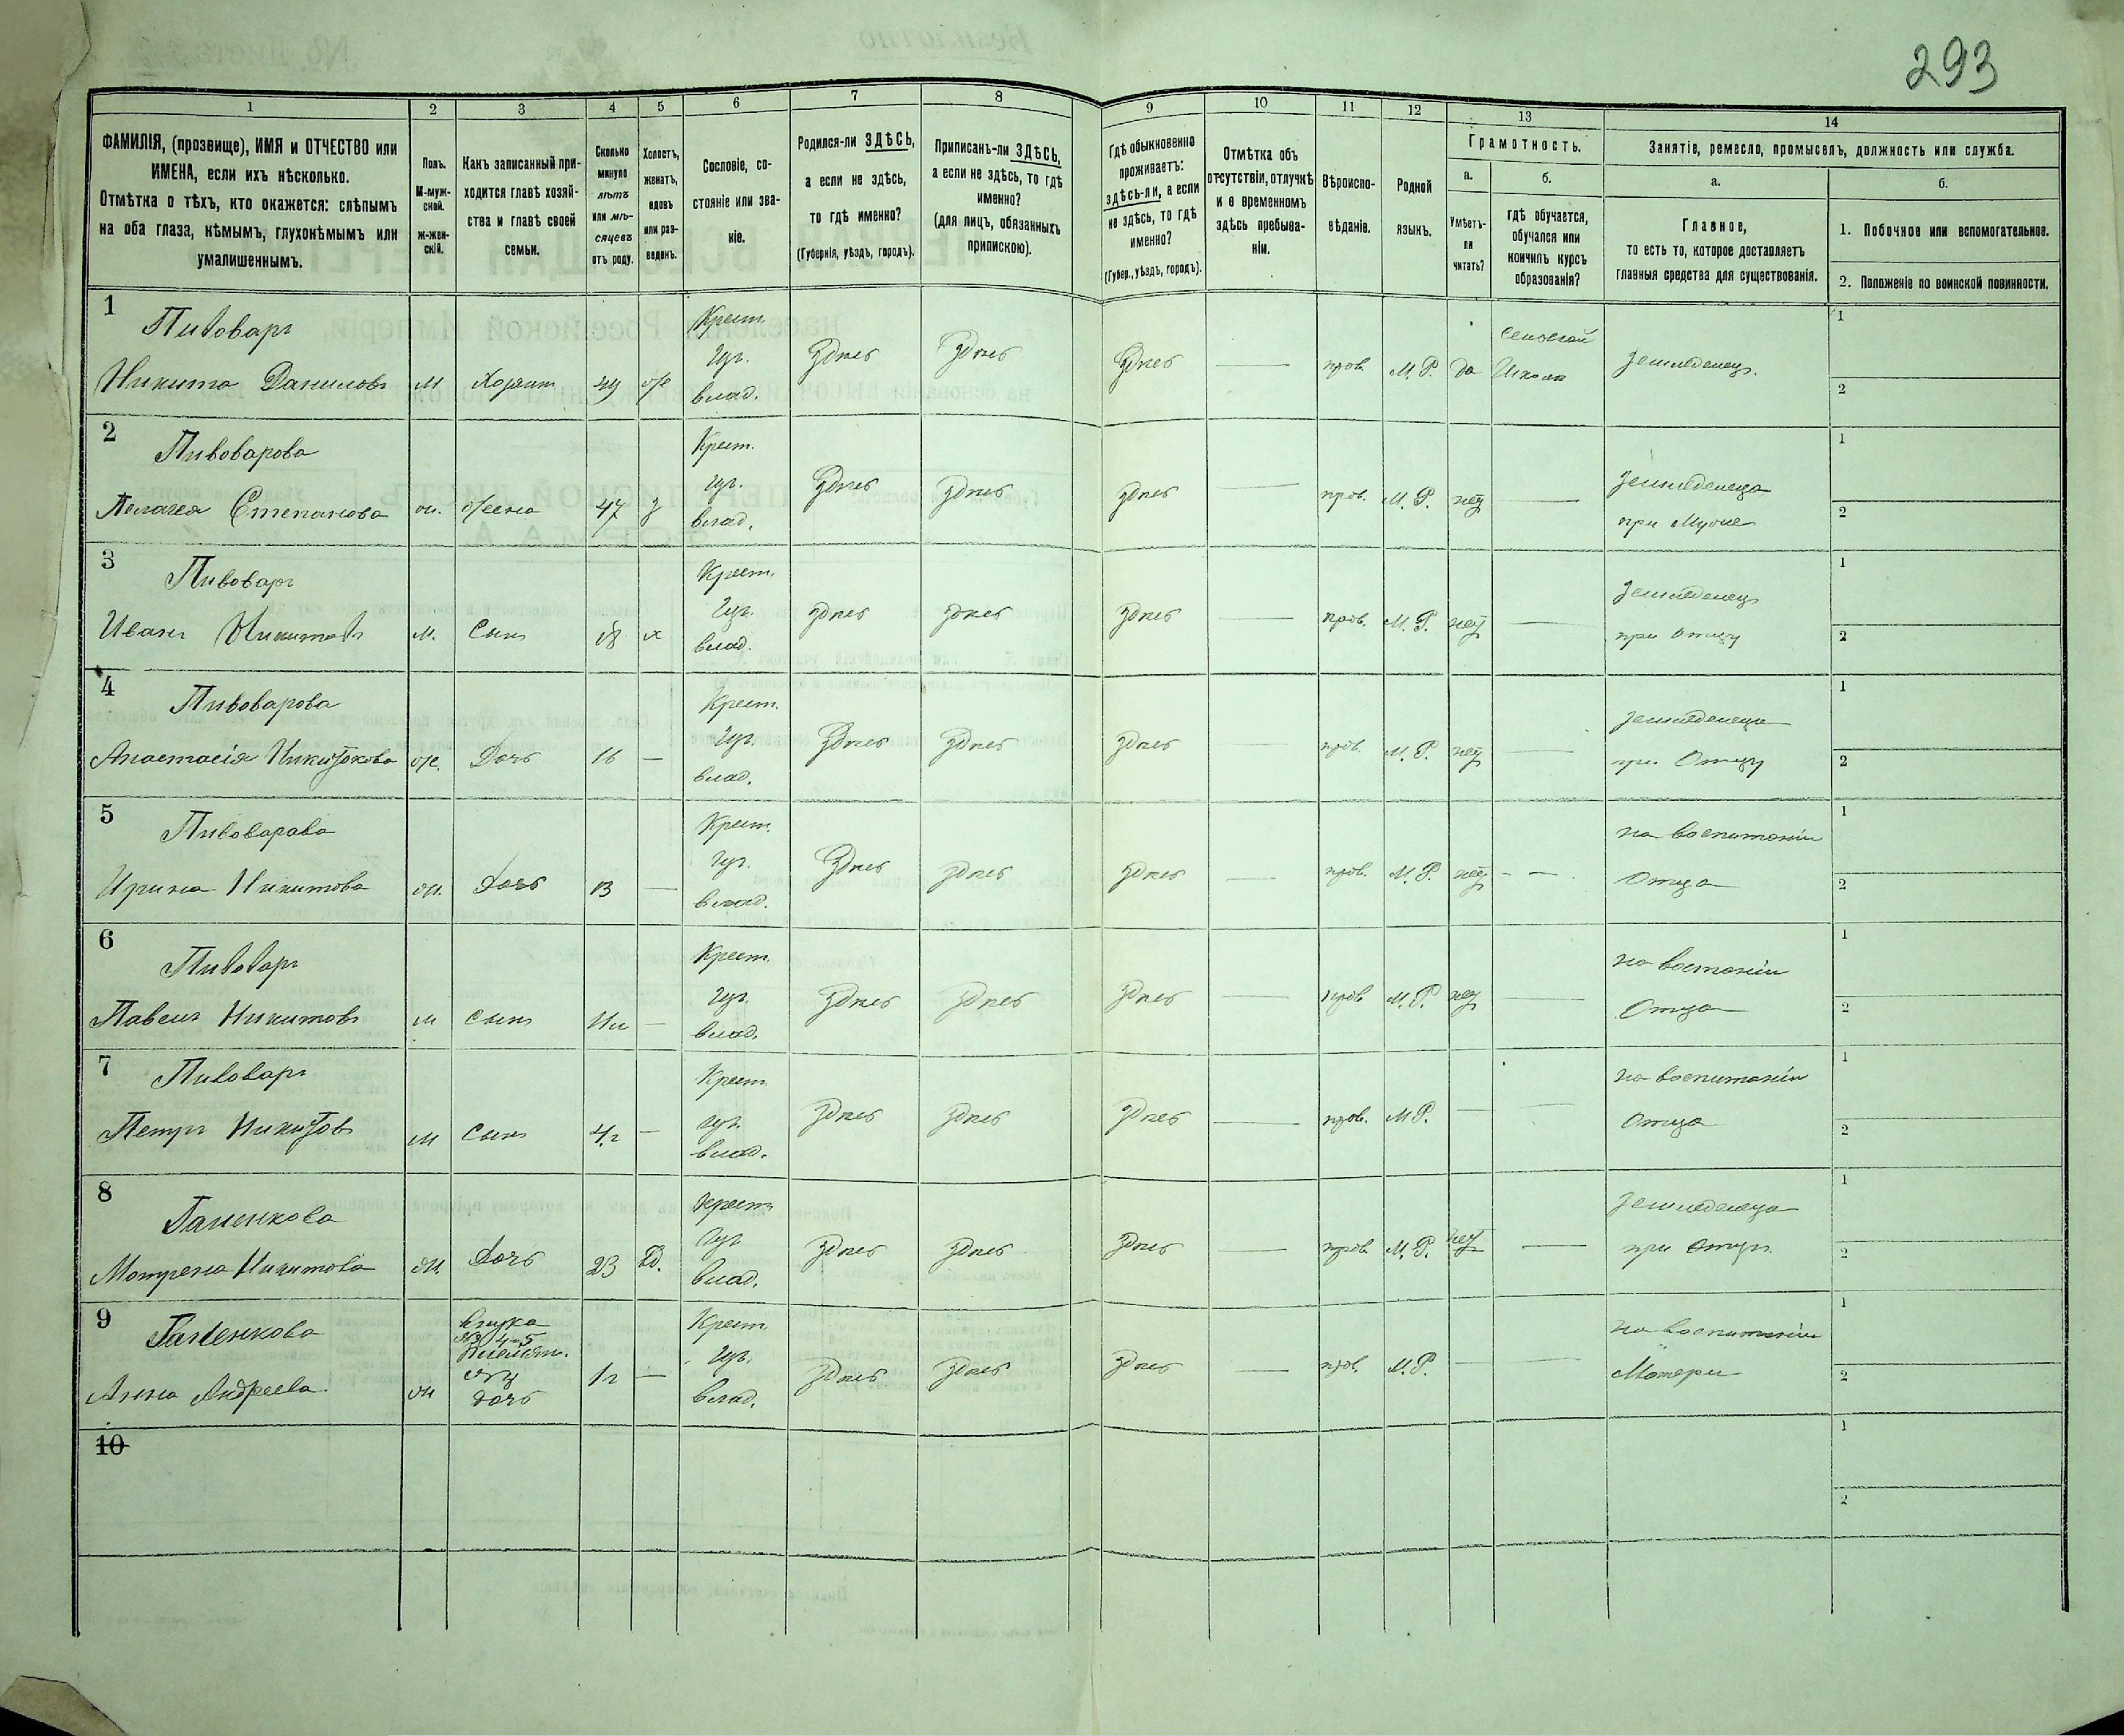 293
1 2 3 4 5 6 7 8 9 10 11 12 13 14
ФАМИЛІЯ, (прозвище), ИМЯ и ОТЧЕСТВО или
ИМЕНА, если ихъ нѣсколько.
Отмѣтка о тѣхъ, кто окажется: слѣпымъ
на оба глаза, нѣмымъ, глухонѣмымъ или
умалишеннымъ.
Полъ.
М-муж-
ской.
Ж-жен-
скій.
Какъ записанный при-
ходится главѣ хозяй-
ства и главѣ своей
семьи.
Сколько
минуло
лѣтъ
или мѣ-
сяцевъ
отъ роду.
Холостъ,
женатъ,
вдовъ
или раз-
веденъ.
Сословіе, со-
стояніе или зва-
ніе.
Родился-ли ЗДѢСЬ,
а если не здѣсь,
то гдѣ именно?
(Губернія, уѣздъ, городъ).
Приписанъ-ли ЗДѢСЬ,
а если не здѣсь, то гдѣ
именно?
(для лицъ, обязанныхъ
припискою).
Гдѣ обыкновенно
проживаетъ:
здѣсь-ли, а если
не здѣсь, то гдѣ
именно?
(Губер., уѣздъ, городъ).
Отмѣтка объ
отсутствіи, отлучкѣ
и о временномъ
здѣсь пребыва-
ніи.
Вѣроиспо-
вѣданіе.
Родной
языкъ.
Грамотность.
а.
Умѣетъ-
ли
читать?
б.
гдѣ обучается,
обучался или
кончилъ курсъ
образованія?
Занятіе, ремесло, промыселъ, должность или служба.
а.
Главное,
то есть то, которое доставляетъ
главныя средства для существованія.
б.
1. Побочное или вспомогательное.
2. Положеніе по воинской повинности.
1
Пивоваръ
Никита Даниловъ м Хозяин 49 ж
Крест.
влад.
Здись Здись Здись — прав. М. Р. да
Школа
1
2
2
Пивоварова
Пелагея Степанова ж. жена 47 з
Крест.
влад.
Здись здись здись — прав. М. Р. нет —
при Муже
1
2
3
Пивоваръ
Иванъ Никитовъ м. Сынъ 18 х
Крест.
влад.
здись здись здись — прав. М. Р. нет —
при отцу
1
2
4
Пивоварова
Анастасія ж. Дочь 16 —
Крест.
влад.
Здись Здись здись — прав. М. Р. нет —
при Отцу
1
2
5
Пивоварова
Ирина Никитова ж. Дочь 13 —
Крест.
влад.
Здись здись здись — прав. М. Р. нет — —
на воспитаніи
отца
1
2
6
Пивоваръ
Павелъ Никитовъ м сынъ —
Крест.
влад.
Здись Здись здись — прав М. Р. нет —
Отца
1
2
7
Пивоваръ
Петръ Никитовъ м Сынъ 4 г —
Крест.
влад.
Здись здись Здись — прав. М. Р. — —
на воспитаніи
Отца
1
2
8
Мотрена Никитова ж. Дочь 23 вд.
Крест.
влад.
Здись здись здись — прав М. Р. нет —
при отцу
1
2
9
Анна Андреева ж
внука
дочь
1 г —
Крест.
влад.
здись здись здись — прав. М. Р. — —
на воспитаніи
Матери
1
2
10
1
2